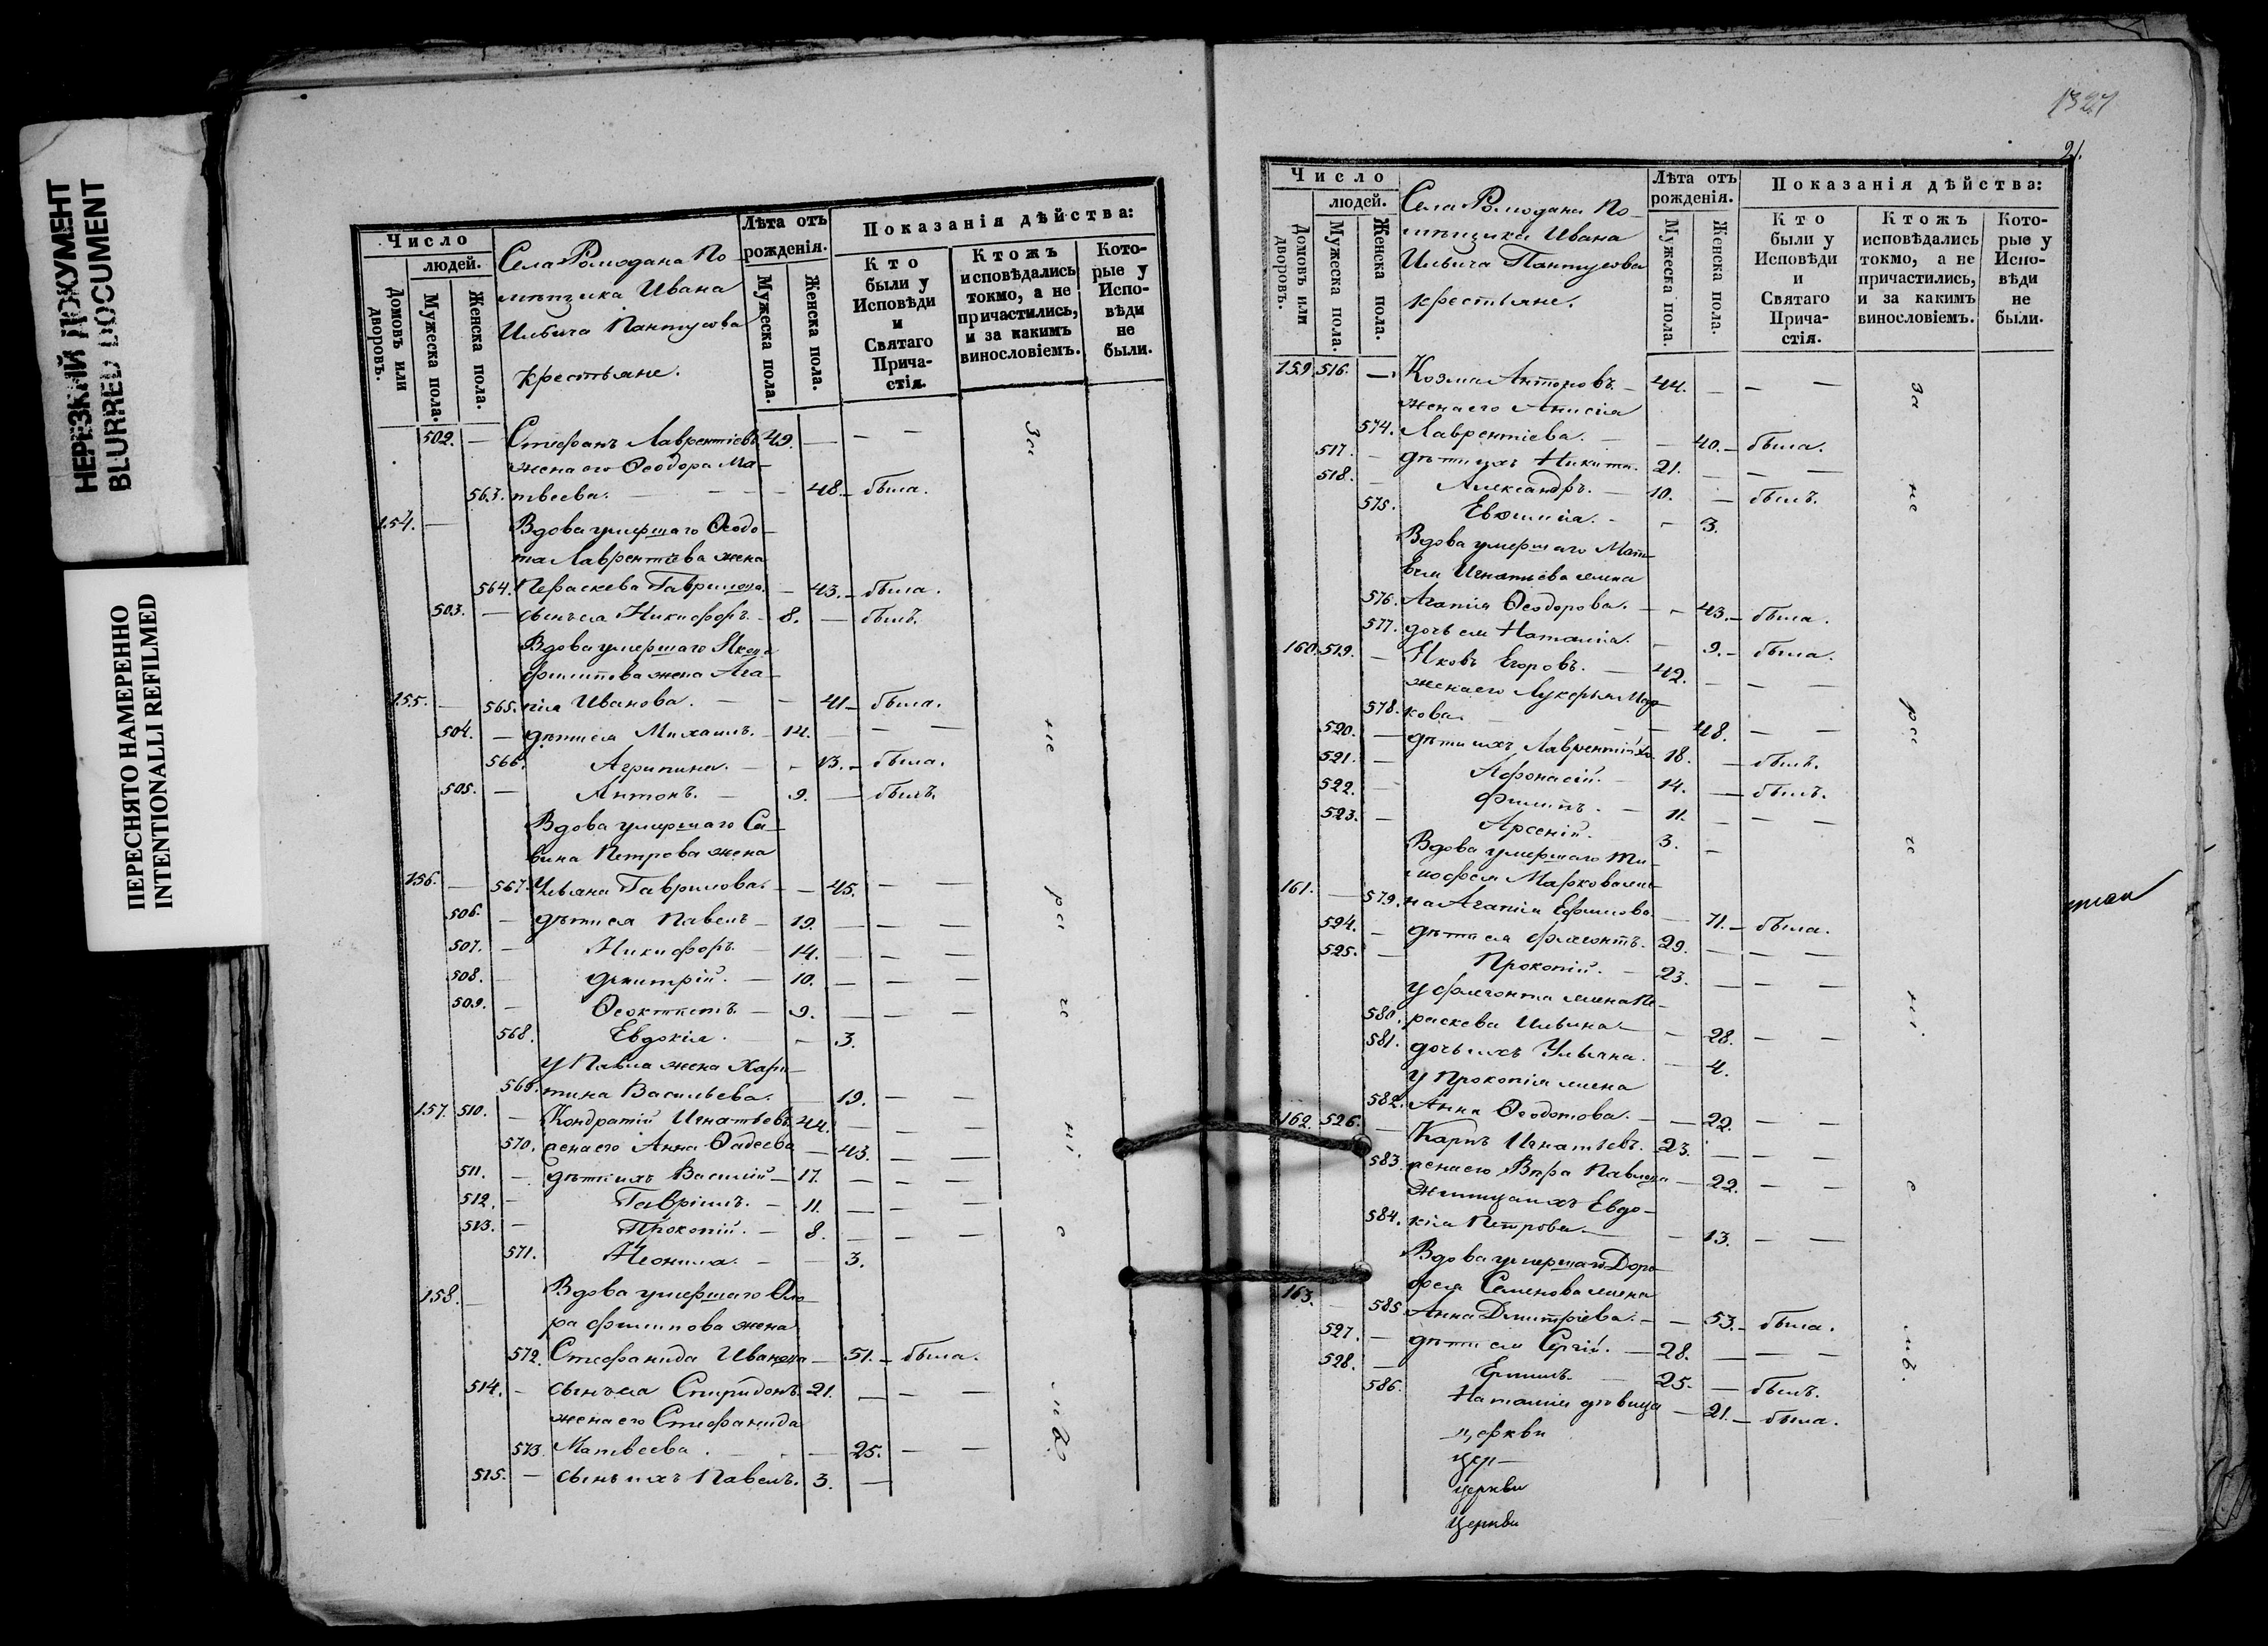 НЕРЕЗКИЙ ДОКУМЕНТ
BLURRED DOCUMENT
ПЕРЕСНЯТО НАМЕРЕННО
INTENTIONALLI REFILMED
Число
людей.
Домовъ или дворовъ.
Мужеска пола.
Женска пола.
Села Ромодана По-
мѣщика Ивана
Ильича Пантусова
крестьяне.
Лѣта отъ рожденія.
Мужеска пола.
Женска пола.
Показанія дѣйства:
Кто были у Исповѣди и Святаго Прича-стія.
Ктожъ исповѣдались токмо, а не причастились, и за какимъ винословіемъ.
Кото-рые у Испо-вѣди не были.
502. — Стефанъ Лаврентіевъ 49. — — —
жена его Ѳеодора Ма-
563. твеева. — — — 48. — была.
154. — Вдова умершаго Ѳеодо-
та Лаврентьева жена
564. Параскева Гаврилова. — 43. — была.
503. — сынъ ея Никифоръ — 8. — былъ.
Вдова умершаго Якова
Филипова жена Ага-
155. — 565. пія Иванова. — — 41 — была.
504. — дѣти ея Михаилъ. — 14. — — —
566. Агрипина. — — 13. — была.
505. — Антонъ. — 9. — былъ.
Вдова умершаго Са-
вина Петрова жена
156. — 567. Ульяна Гаврилова. — — 45. — —
506. — дѣти ея Павелъ — 19. — — —
507. — Никифоръ — 14. — — —
508. — Дмитрій. — 10. — — —
509. — Ѳеоктистъ — 9. — — —
568. Евдокія. — — 3.
у Павла жена Хари-
569. тина Васильева. — 19. — —
157. 510. — Кондратій Игнатьевъ 44. — — —
570. жена его Анна Фадеева — 43. — —
511. — дѣти ихъ Василій — 17. — — —
512. — Гавріилъ. — 11. — — —
513. — Прокопій. — 8. — — —
571. Неонила. — — 3.
158. — Вдова умершаго
ра Филипова жена
572. Стефанида Иванова — 51. — была.
514. — сынъ ея Спиридонъ. 21. — — —
жена его Стефанида
573. Матвеева. — — 25. — —
515. — сынъ ихъ Павелъ. 3. —
За
не
ра
че
ні
е
мъ
1327
21.
Число
людей.
Домовъ или дворовъ.
Мужеска пола.
Женска пола.
Села Ромодана По-
мѣщика Ивана
Ильича Пантусова
крестьяне.
Лѣта отъ рожденія.
Мужеска пола.
Женска пола.
Показанія дѣйства:
Кто были у Исповѣди и Святаго Прича-стія.
Ктожъ исповѣдались токмо, а не причастились, и за какимъ винословіемъ.
Кото-рые у Испо-вѣди не были.
159. 516. — Козма Антоновъ. — 44. — — —
жена его Анисія
574. Лаврентіева. — — 40. — была.
517. — дѣти ихъ Никита. 21. — — —
518. — Александръ. — 10. — былъ.
575. Евфимія. — — 3.
Вдова умершаго Мат-
вѣя Игнатьева жена
576. Агапія Ѳеодорова. — — 43. — была.
577. дочь ея Наталія. — 9. — была.
160. 519. — Яковъ Егоровъ. — 42. — — —
жена его Лукерья Мар-
578. кова. — — 48. — —
520. — дѣти ихъ Лаврентій хо. 18. — былъ.
521. — Афонасій. — 14. — былъ.
522. — Филипъ. — 11. — — —
523. — Арсеній. — 3. —
Вдова умершаго Ти-
мофея Маркова же-
161. — 579. на Агапія Ефимова. — 71. — была.
524. — дѣти ея Флегонтъ. 29. — — —
525. — Прокопій. — 23. — — —
у Флегонта жена Па-
580. раскева Ильина — — 28. — —
581. дочь ихъ Ульяна. — 4.
у Прокопія жена
582. Анна Ѳеодотова. — — 22. — —
162. 526. — Карпъ Игнатьевъ. 23. — — —
583. жена его Вѣра Павлова — 22. — —
жилица ихъ Евдо-
584. кія Петрова — — 13. — —
Вдова умершаго Доро-
фея Семенова жена
163. — 585. Анна Дмитріева. — — 53. — была.
527. — дѣти ея Сергій. — 28. — — —
528. — Ермилъ. — 25. — былъ.
586. Наталія дѣвица — 21. — была.
церкви
цер-
церкви
Церкви
За
не
ра
че
ні
е
мъ.